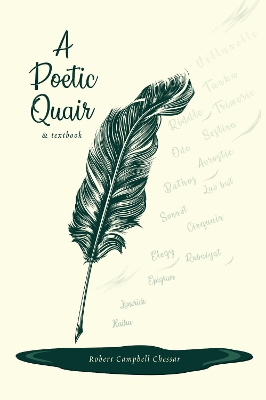 A
Poetic
Quair
& textbook
Villanelle
Tanka
Riddle Trimeric
Sestina
Ode
Acrostic
Bathos
Luc bat
Sonnet
Cinquain
Elegy
Rubaiyat
Epigram
Limerick
Haiku
Robert Campbell Chessar